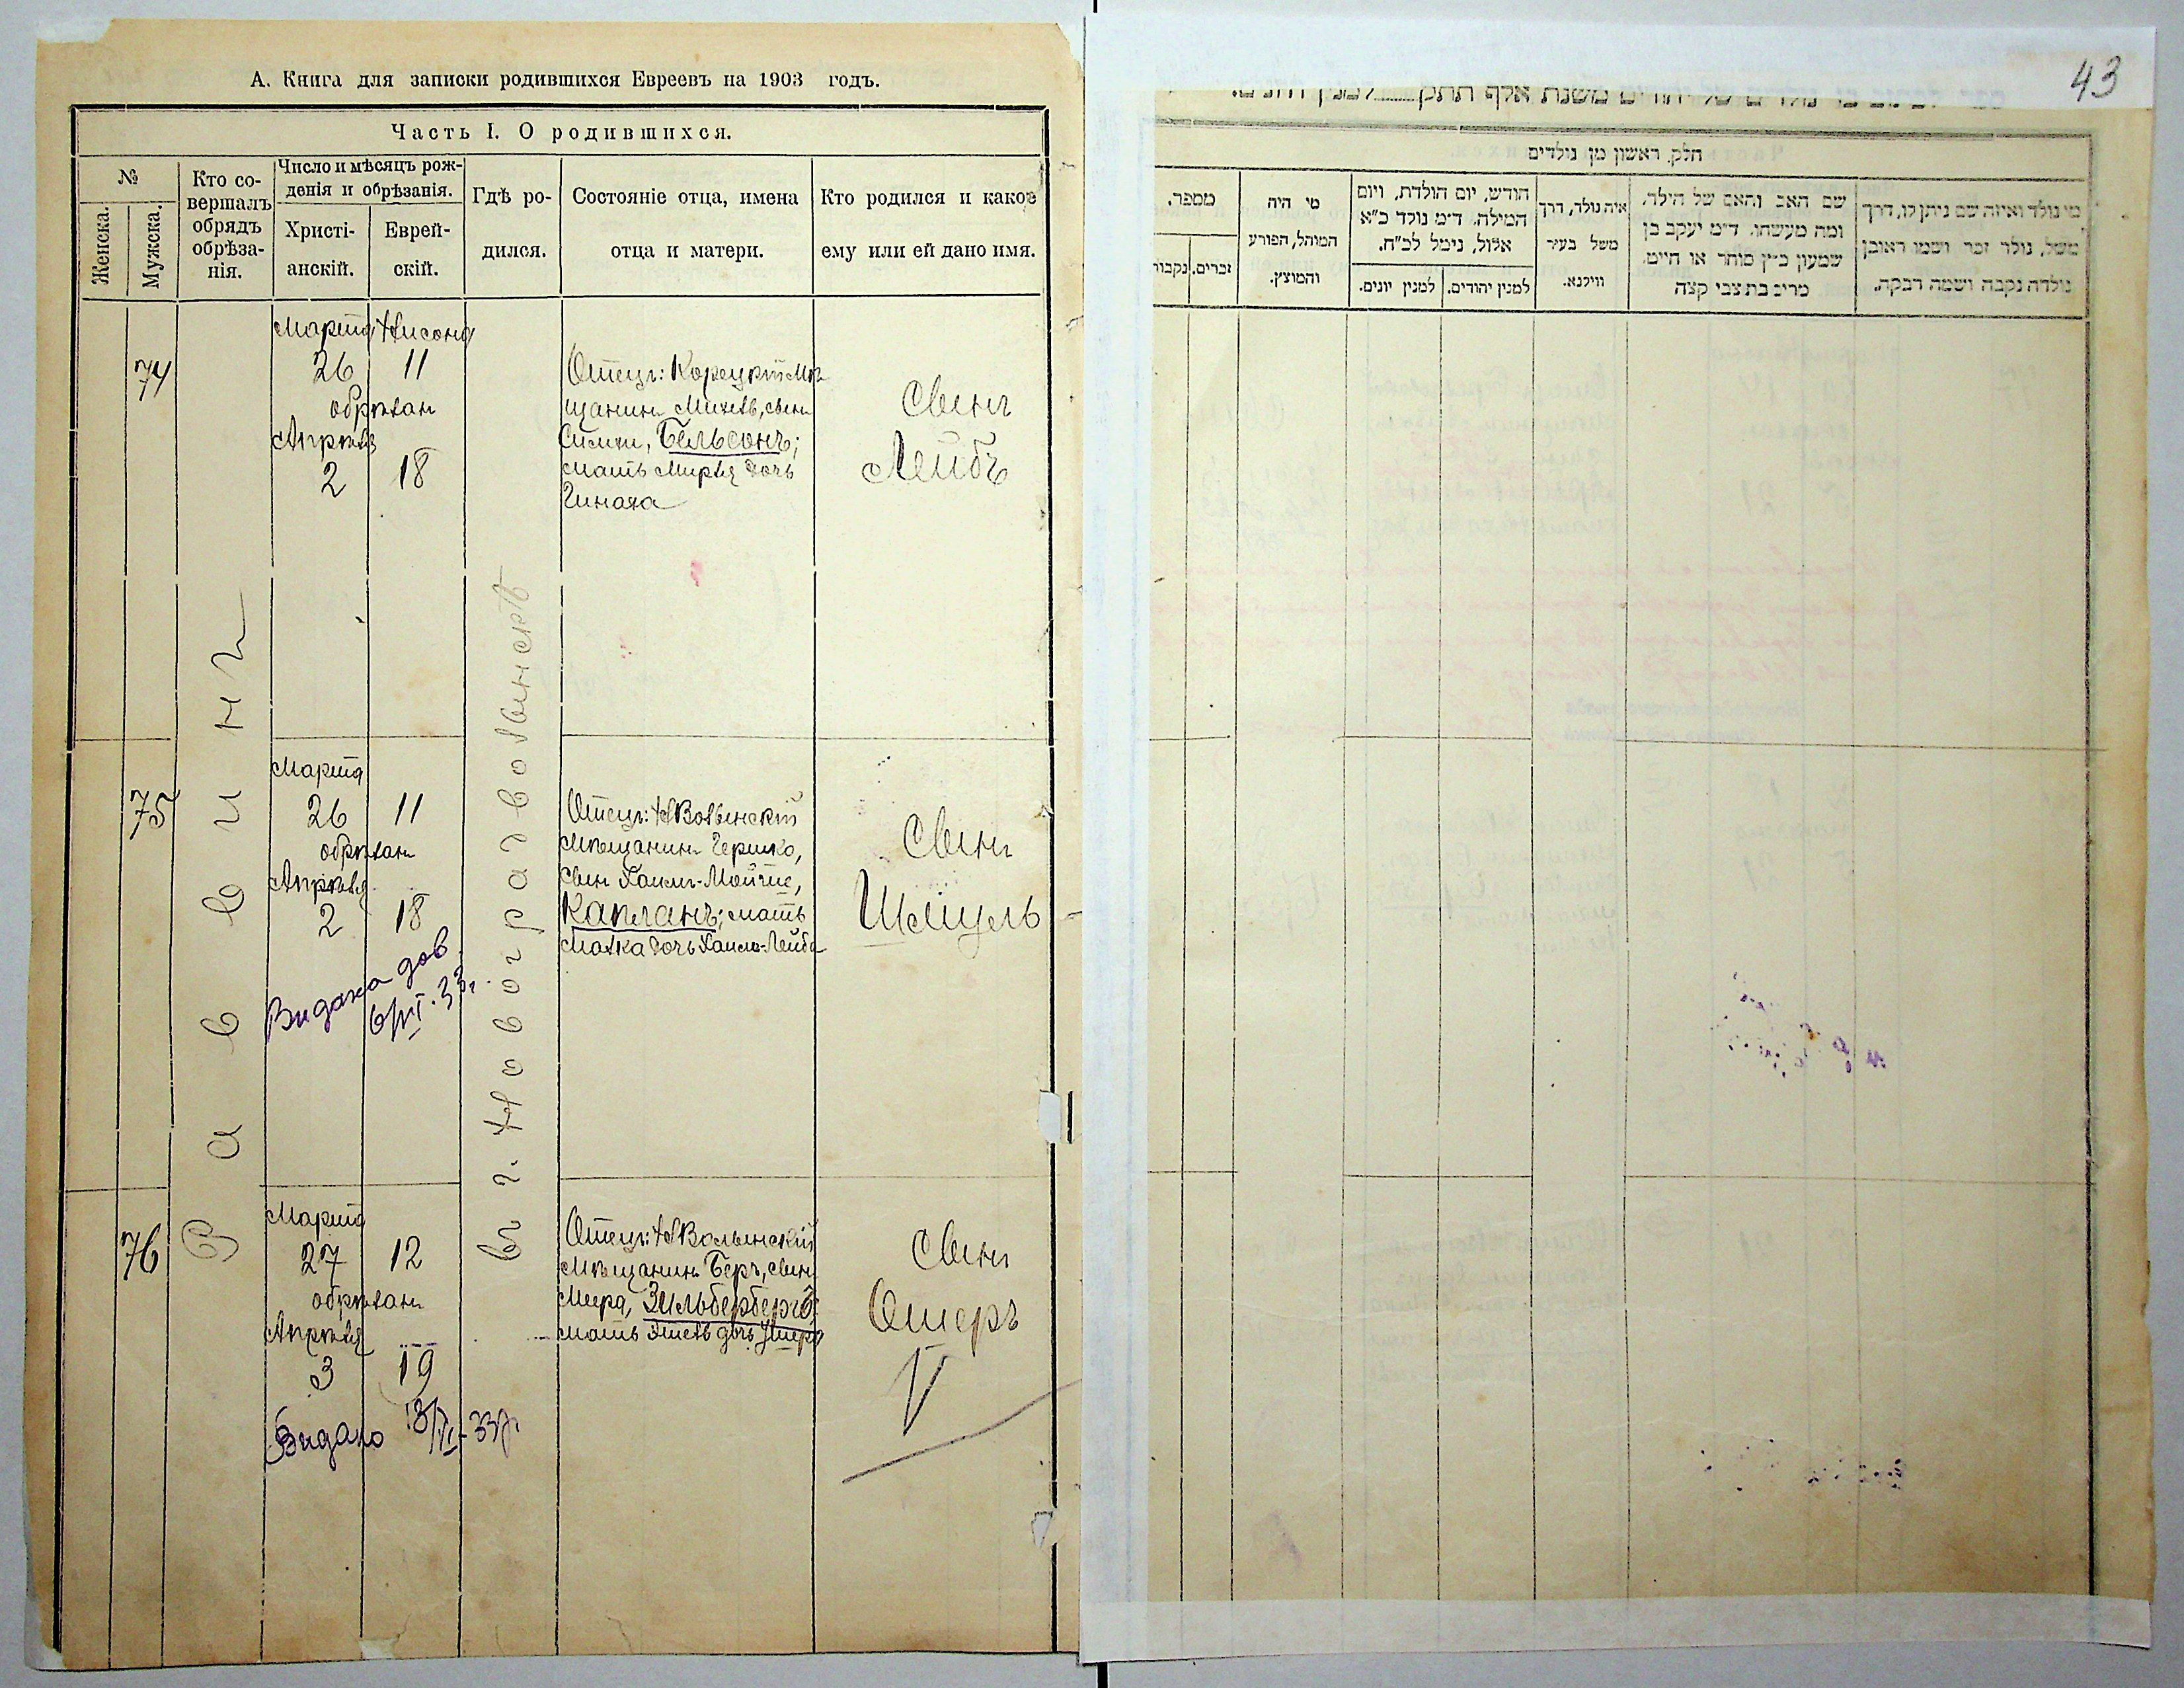 А. Книга для записки родившихся Евреевъ на 1903 годъ.
Часть I. О родившихся.
№
Женска.
Мужска.
Кто со-
вершалъ
обрядъ
обрѣза-
нія.
Число и мѣсяцъ рож-
денія и обрѣзанія.
Христі-
анскій.
Еврей-
скій.
Гдѣ ро-
дился.
Состояніе отца, имена
отца и матери.
Кто родился и какое
ему или ей дано имя.
Раввинъ
въ г. Новоградволынскѣ
74
Марта Нисона
26 11
обрѣзан
Апрѣля
2 18
Отецъ: Корецкій Мѣ
щанинъ Михель, сынъ
Симхи, Бельсонъ;
мать Мирля дочь
Гиноха
Сынъ
Лейбъ
75
Марта
26 11
обрѣзан
Апрѣля
2 18
Видана дов
6/VI.33г.
Отецъ: НВолынскій
Мѣщанинъ Гершко,
сынъ Хаимъ-Мойше,
Капланъ; мать
Малка дочь Хаимъ-Лейба
Сынъ
Шмуль
76
Марта
27 12
обрѣзан
Апрѣля
3 19
Видано 13/VI-33г.
Отецъ: НВолынскій
Мѣщанинъ Беръ, сынъ
Меера, Зильбербергъ;
мать дочь
Сынъ
Ошеръ
V
43
חלק ראשון מן נולדים
מספר.
זכרים.
נקבות
מי היה
המוהל, הפורע
והמוצץ.
חודש, יום הולדת, ויום
המילה. ד״מ נולד כ״א
אלול, נימל לכ״ח.
למנין יונים.
למנין יהודים.
איה נולד, דרך
משל בעיר
ווילנא.
שם האב והאם של הילד.
ומה מעשהו. ד״מ יעקב בן
שמעון כ״ץ סוחר או חייט.
מרים בת צבי קצה
מי נולד ואיזה שם ניתן לו, דרך
משל, נולד זכר ושמו ראובן
נולדה נקבה ושמה רבקה.